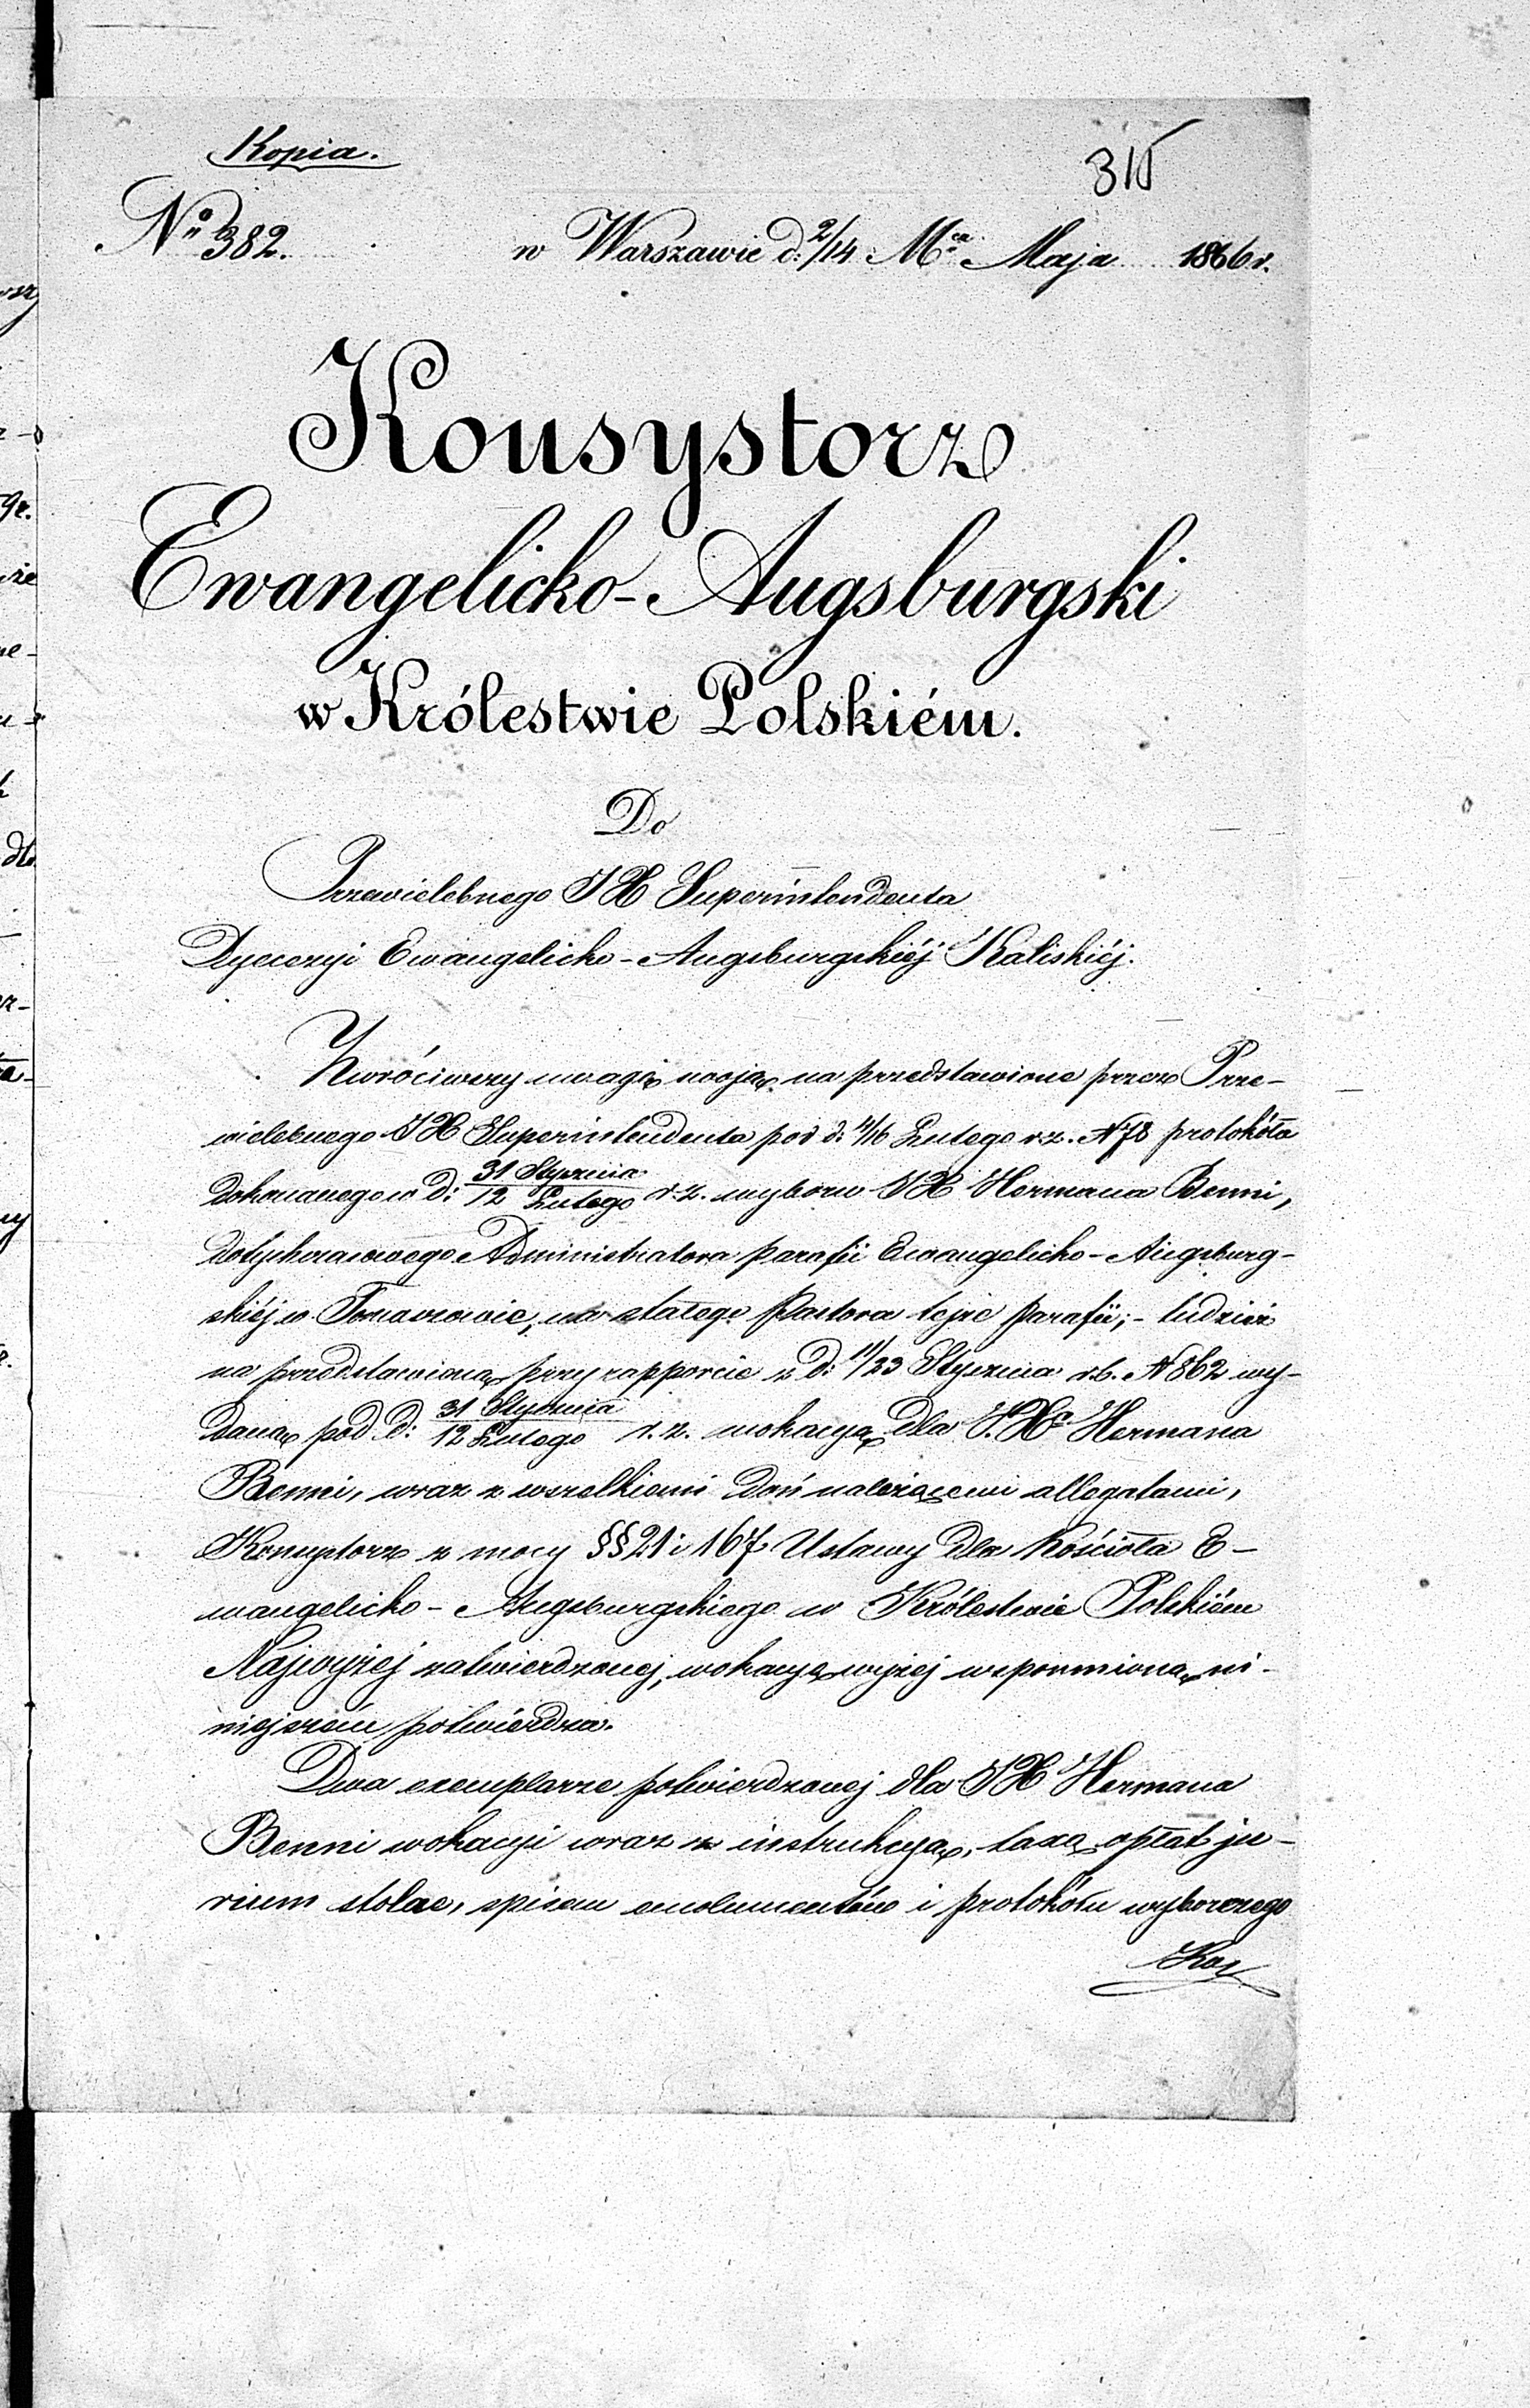 Kopia.
315
№ 382. w Warszawie d: 2/14 Mca Maja 1866 r.
Konsystorz
Ewangelicko-Augsburgski
w Królestwie Polskiém.
Do
Przewielebnego JX Superintendenta
Dyecezyi Ewangelicko-Augsburgskiéj Kaliskiéj.
Zwróciwszy uwagę swoją na przedstawione przez Prze-
wielebnego JX Superintendenta pod d: 4/16 Lutego r.z. N 78 protokóła
dokonanego w d: 31 Stycznia/12 Lutego r.z. wyboru JX Hermana Benni,
dotychczasowego Administratora parafii Ewangelicko-Augsburg-
skiéj w Tomaszowie, na stałego Pastora tejże parafii; - tudzież
na przedstawioną przy rapporcie z d: 11/23 Stycznia r.b. N 862 wy-
daną pod d: 31 Stycznia/12 Lutego r.z. wokacyą dla J.Xa Hermana
Benni, wraz z wszelkiemi doń należącemi allegatami,
Konsystorz z mocy §§ 21 i 167 Ustawy dla Kościoła E-
wangelicko-Augsburgskiego w Królestwie Polskiém
Najwyżej zatwierdzonej, wokacyą wyżej wspomnioną ni-
niejszém potwierdza.
Dwa exemplarze potwierdzonej dla JX Hermana
Benni wokacyi wraz z instrukcyą, taxą opłat ju-
rium stolae, spisem emolumentów i protokółu wyborczego